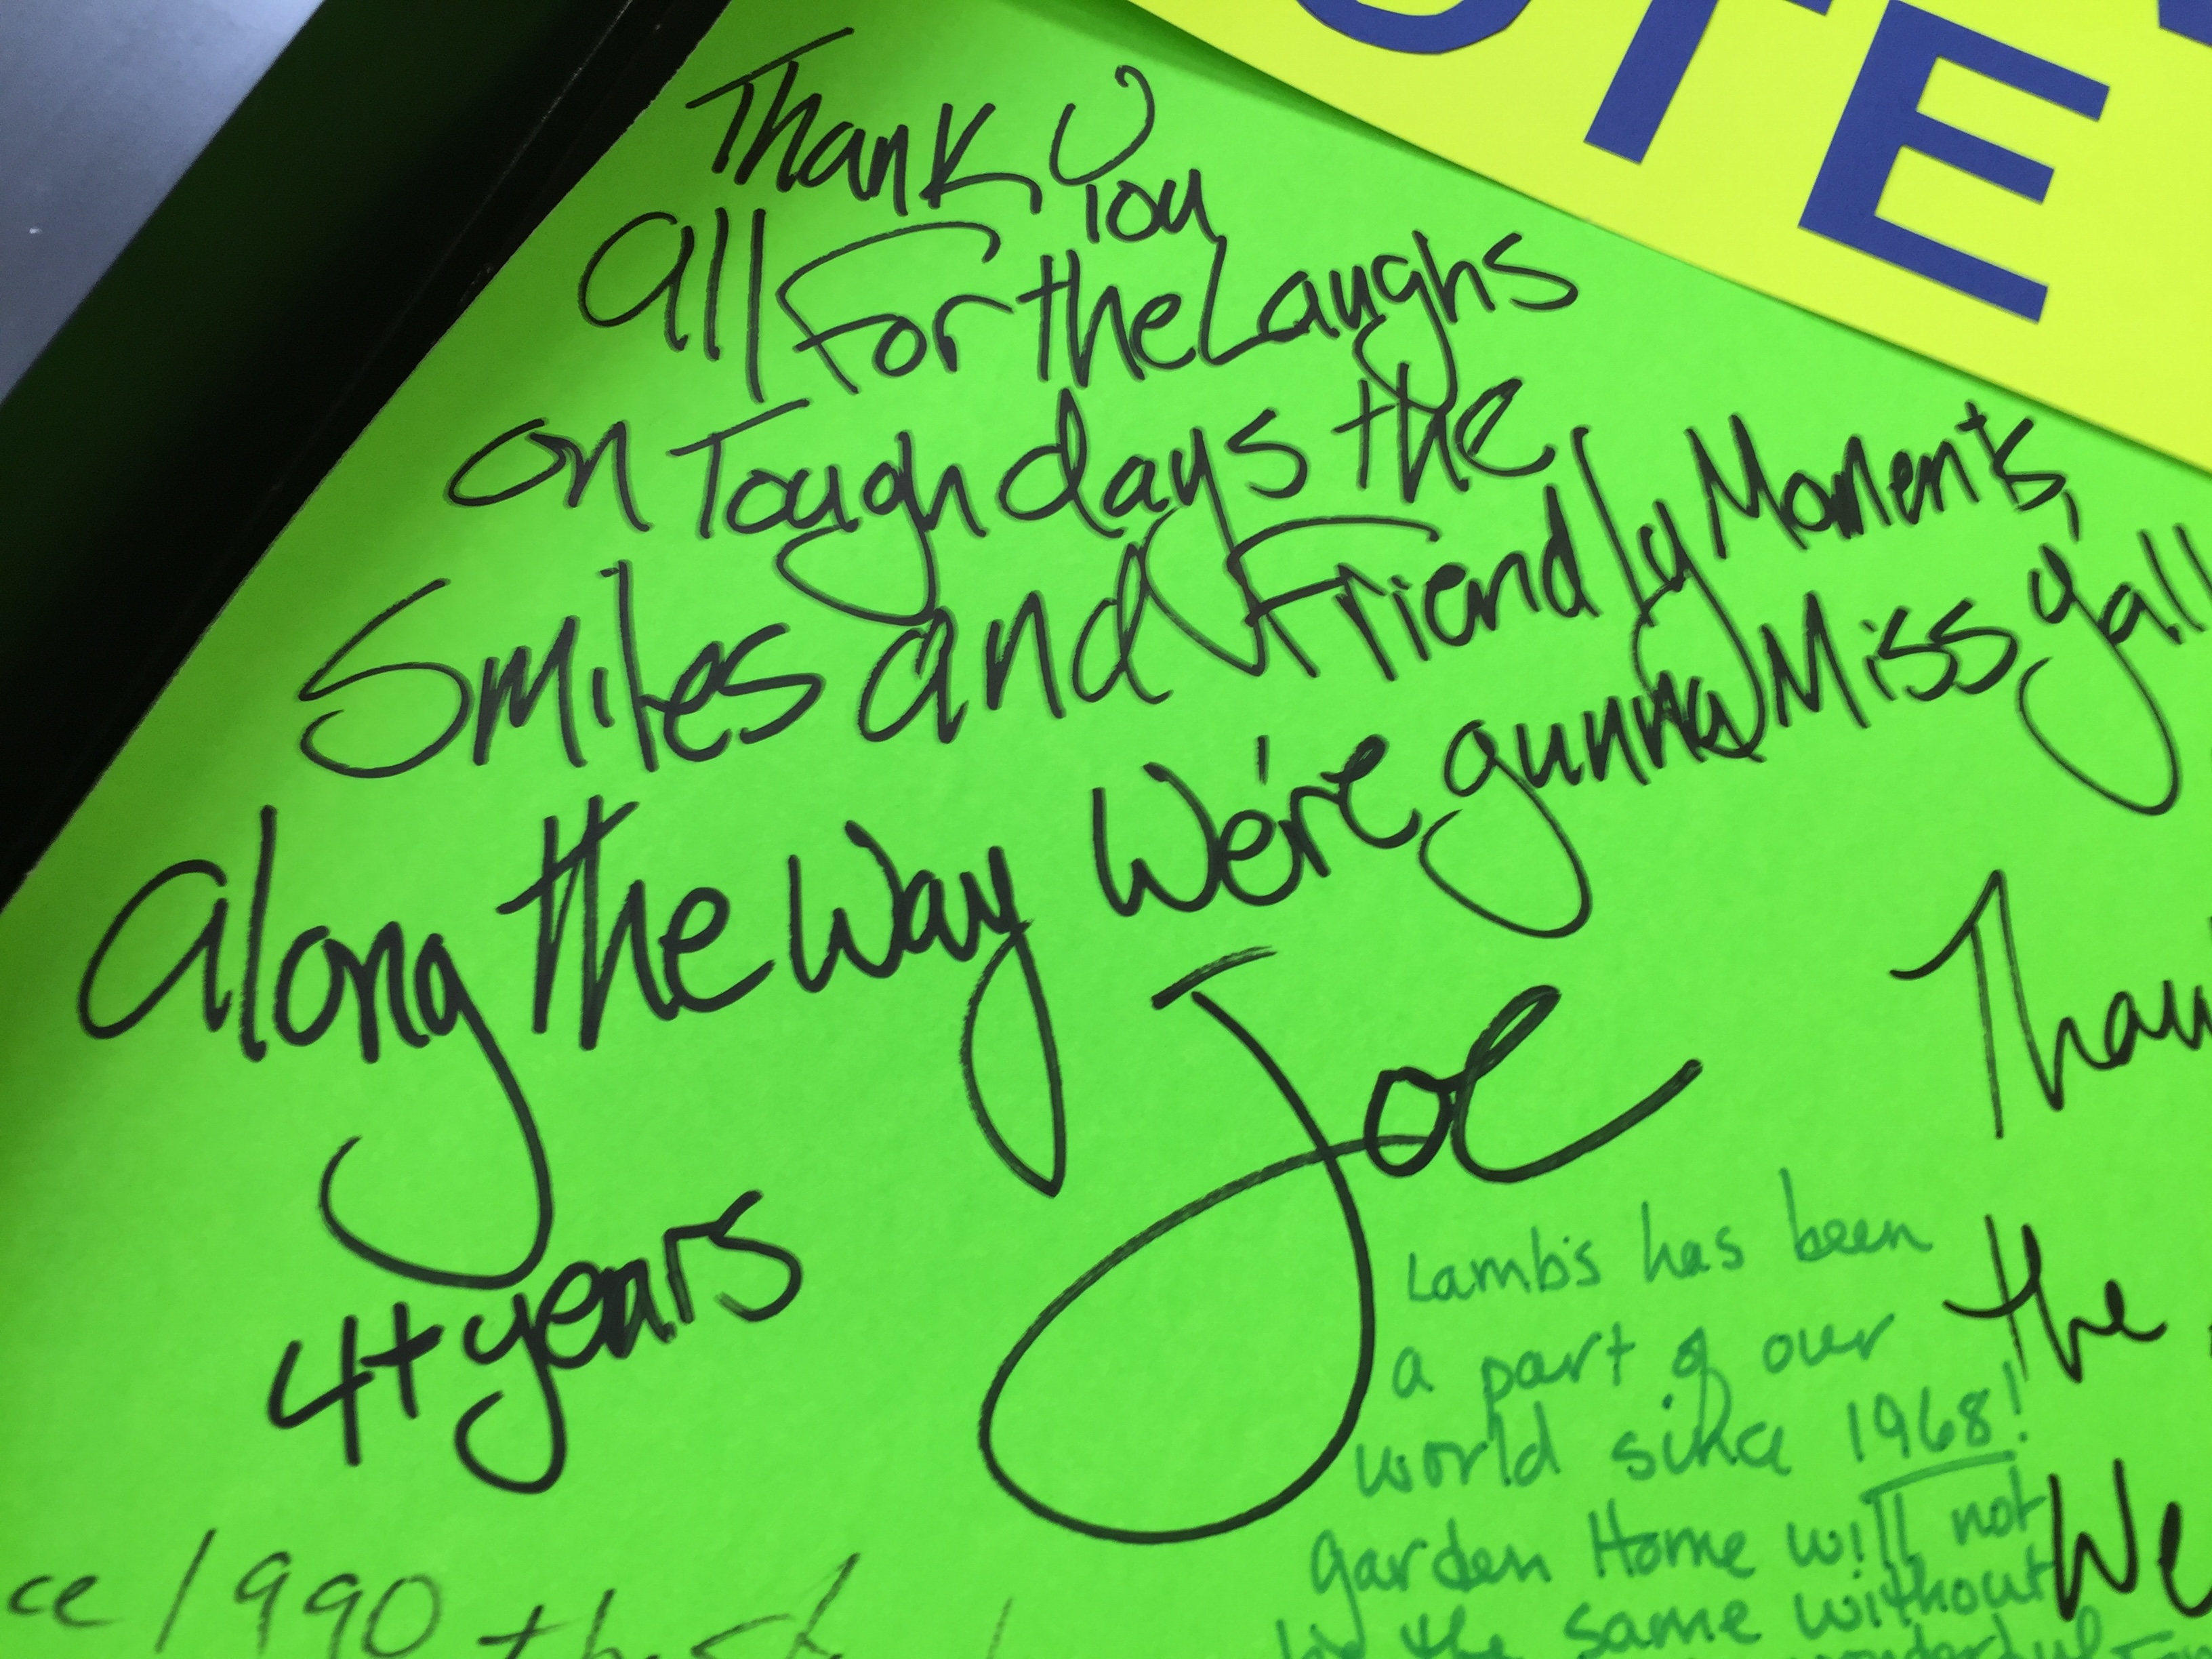 OTE
Thank You
all For the Laughs
on Tough days the
Smiles and Friendly Moments,
along the Way We're gunna Miss y'all
Joe
4+ years
Lamb's has been
a part of our
world since 1968!
Garden Home will not
be the same without
the
We
1990